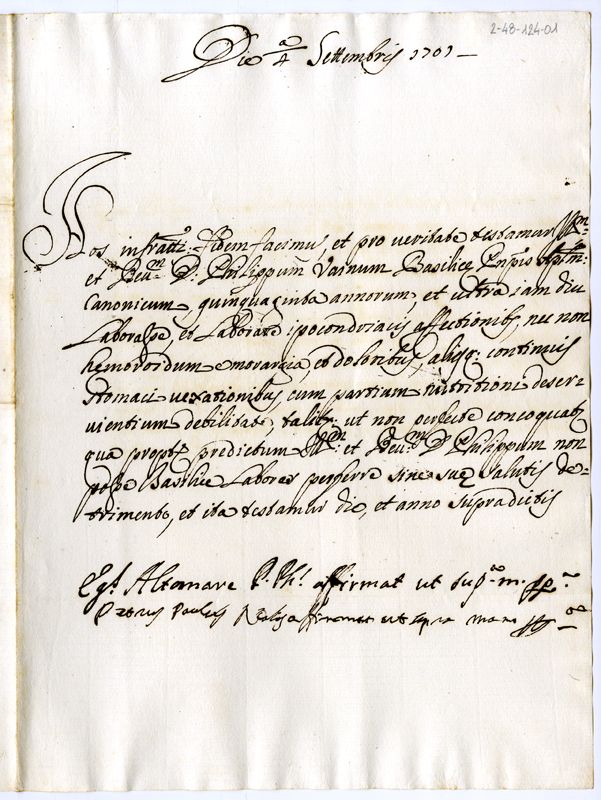 2-48-124-01
Die 4ª Settembris 1701
Nos infrātti fidem facimus, et pro veritate testamur Illm
et Reum D. Philippum Varnum Basilice
Canonicum, quinquaginta annorum, et ultra iam diu
Laborasse, et Laborare ipocondriacis affectionibȝ, nec non
hemoroidum emoraggia, et doloribus, alijsqȝ continuis
stomaci vexationibus, cum partium nutritioni deser=
vientium debilitate, talitȝ ut non perfecte concoquat,
qua proptȝ predictum Illm: et Reum D Philippum non
posse Basilice Labores perferre sine sue salutis de=
trimento, et ita testamur die, et anno supradictis
Altomare P. Ph.s affirmat ut supª m. pp.ª
Petrus Paulus affirmat ut supra manu